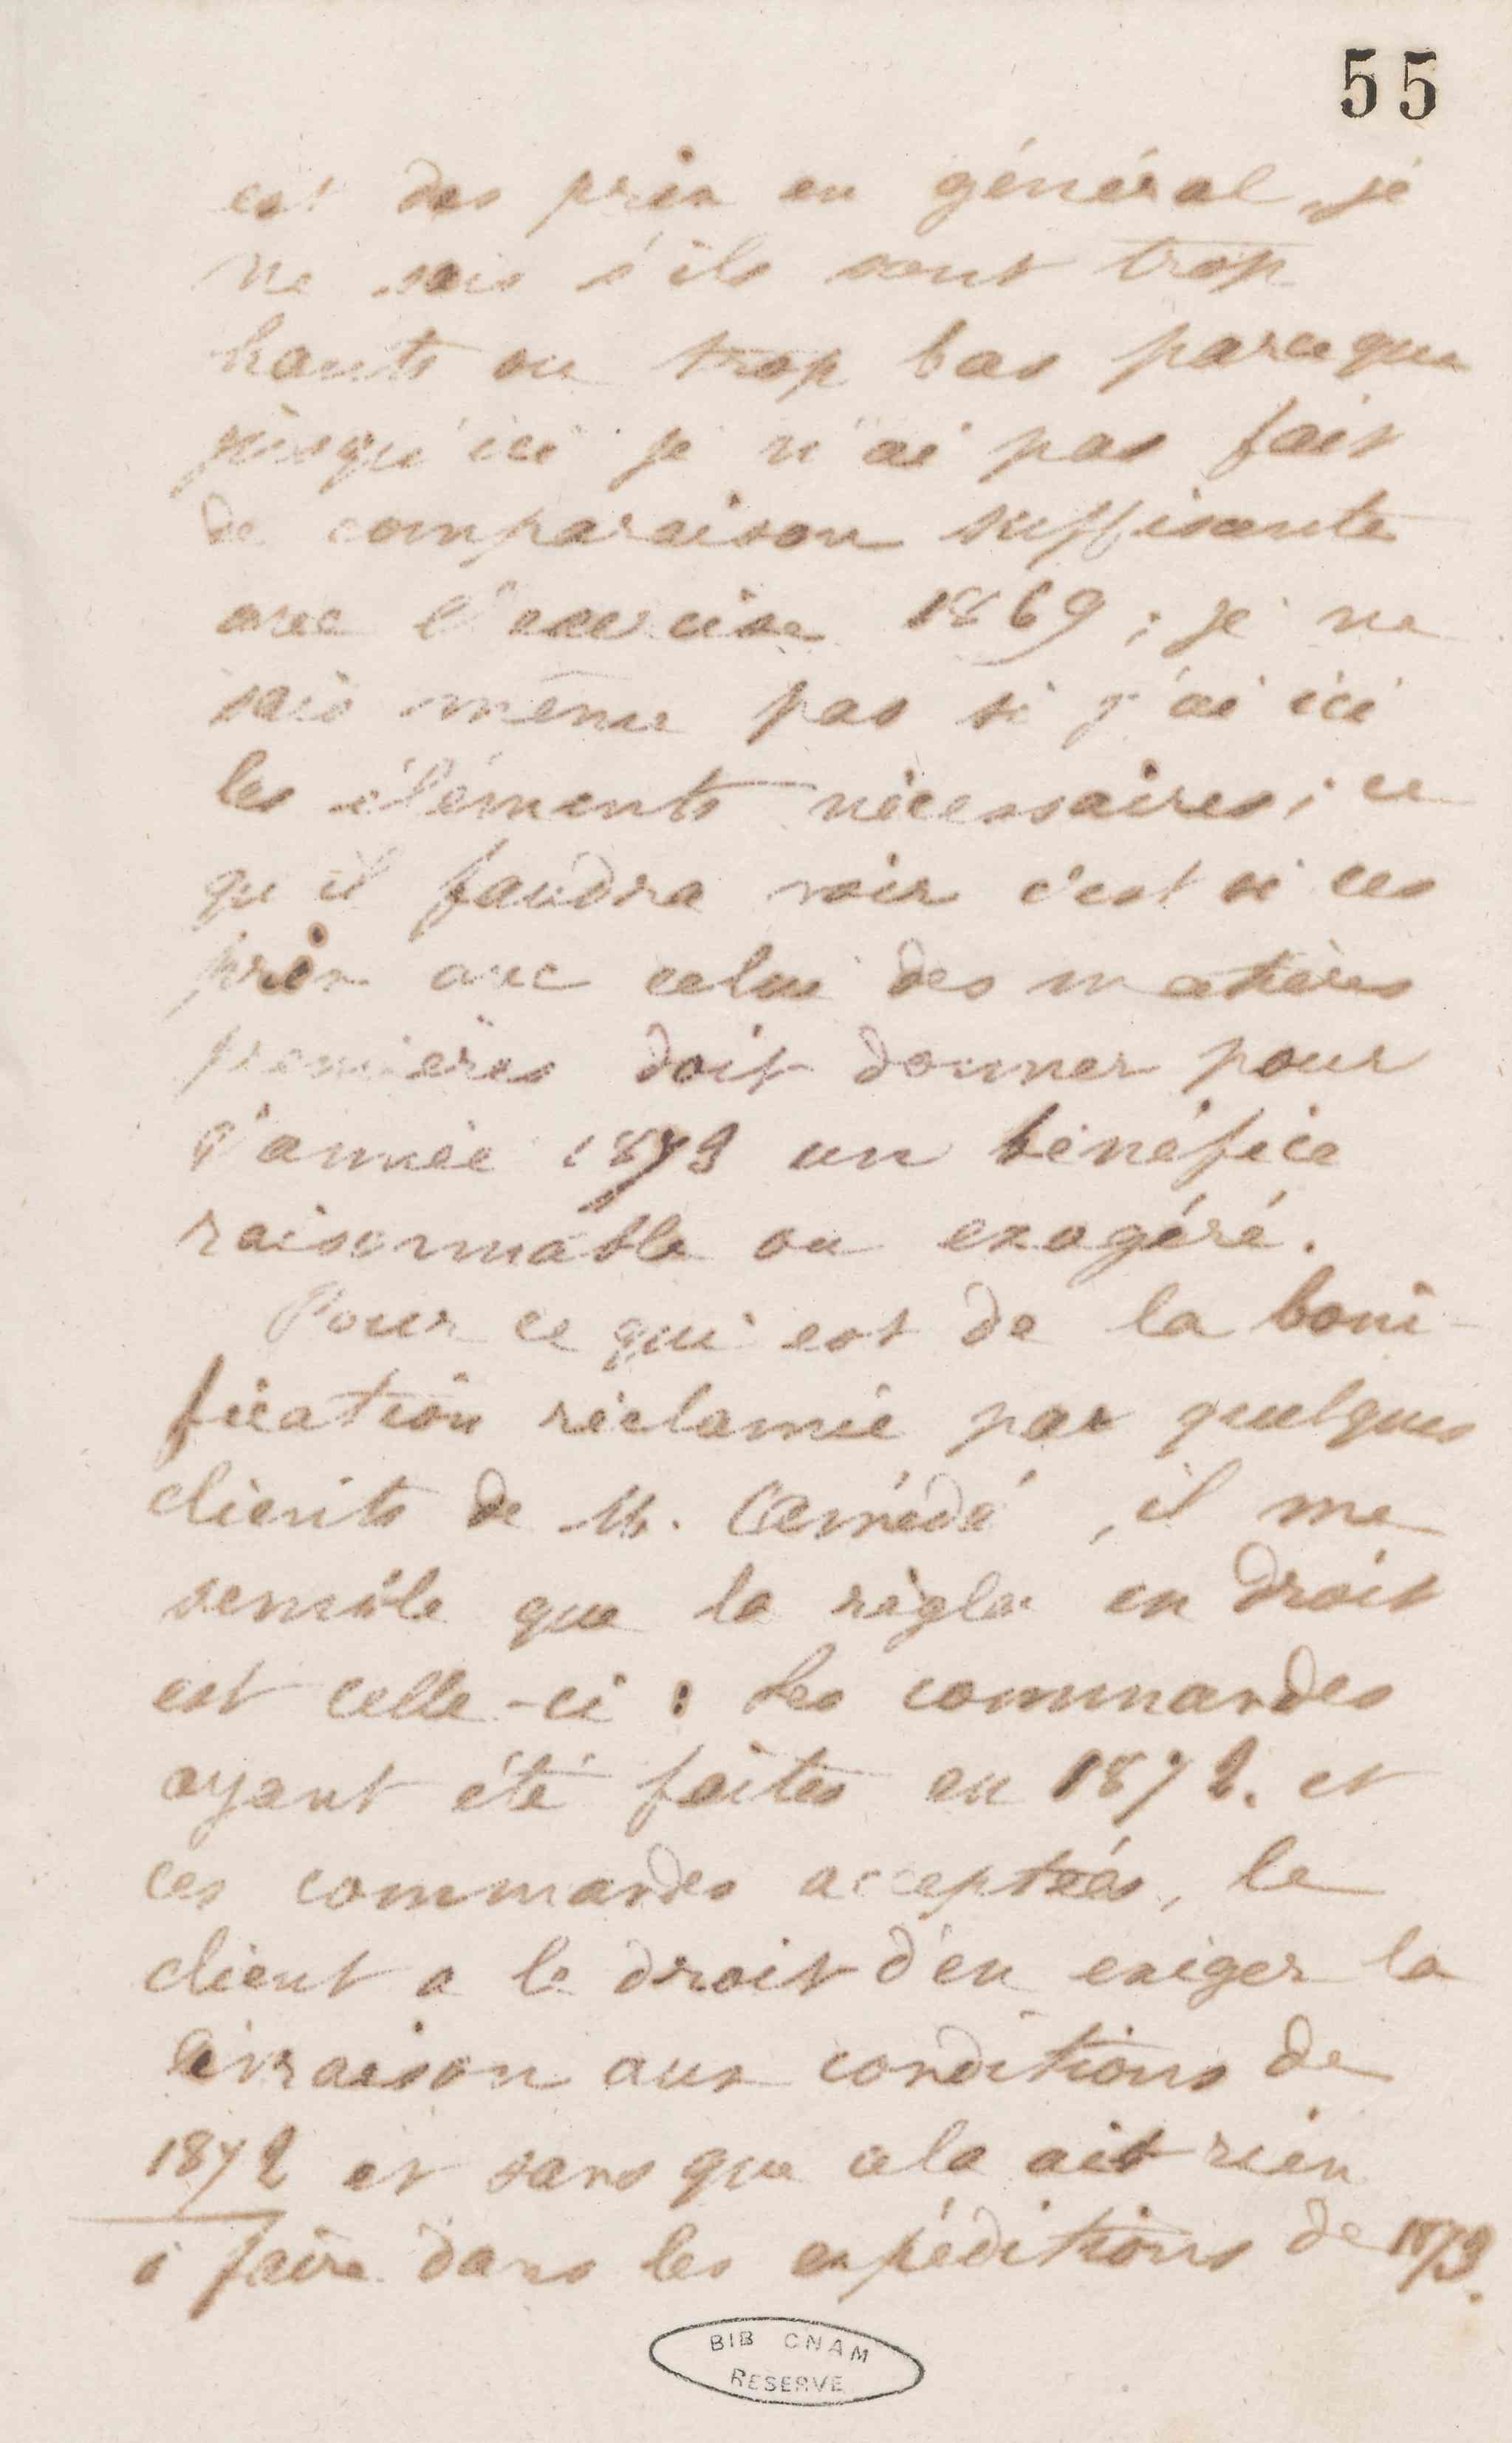 55
est des prix en général, je
ne sais s'ils sont trop
hauts ou trop bas parce que
jusqu'ici je n'ai pas fait
de comparaison suffisante
avec l'exercice 1869 ; je ne
sais même pas si j'ai ici
les éléments nécessaires ; ce
qu'il faudra voir c'est si ces
prix avec celui des matières
premières doit donner pour
l'année 1873 un bénéfice
raisonnable ou exagéré.
Pour ce qui est de la boni-
fication réclamée par quelques
clients de M. , il me
semble que la règle en droit
est celle-ci : les commandes
ayant été faites en 1872. et
ces commandes acceptées, le
client a le droit d'en exiger la
livraison aux conditions de
1872 et sans que cela ait rien
à faire dans les expéditions de 1873.
BIB CNAM
RESERVE